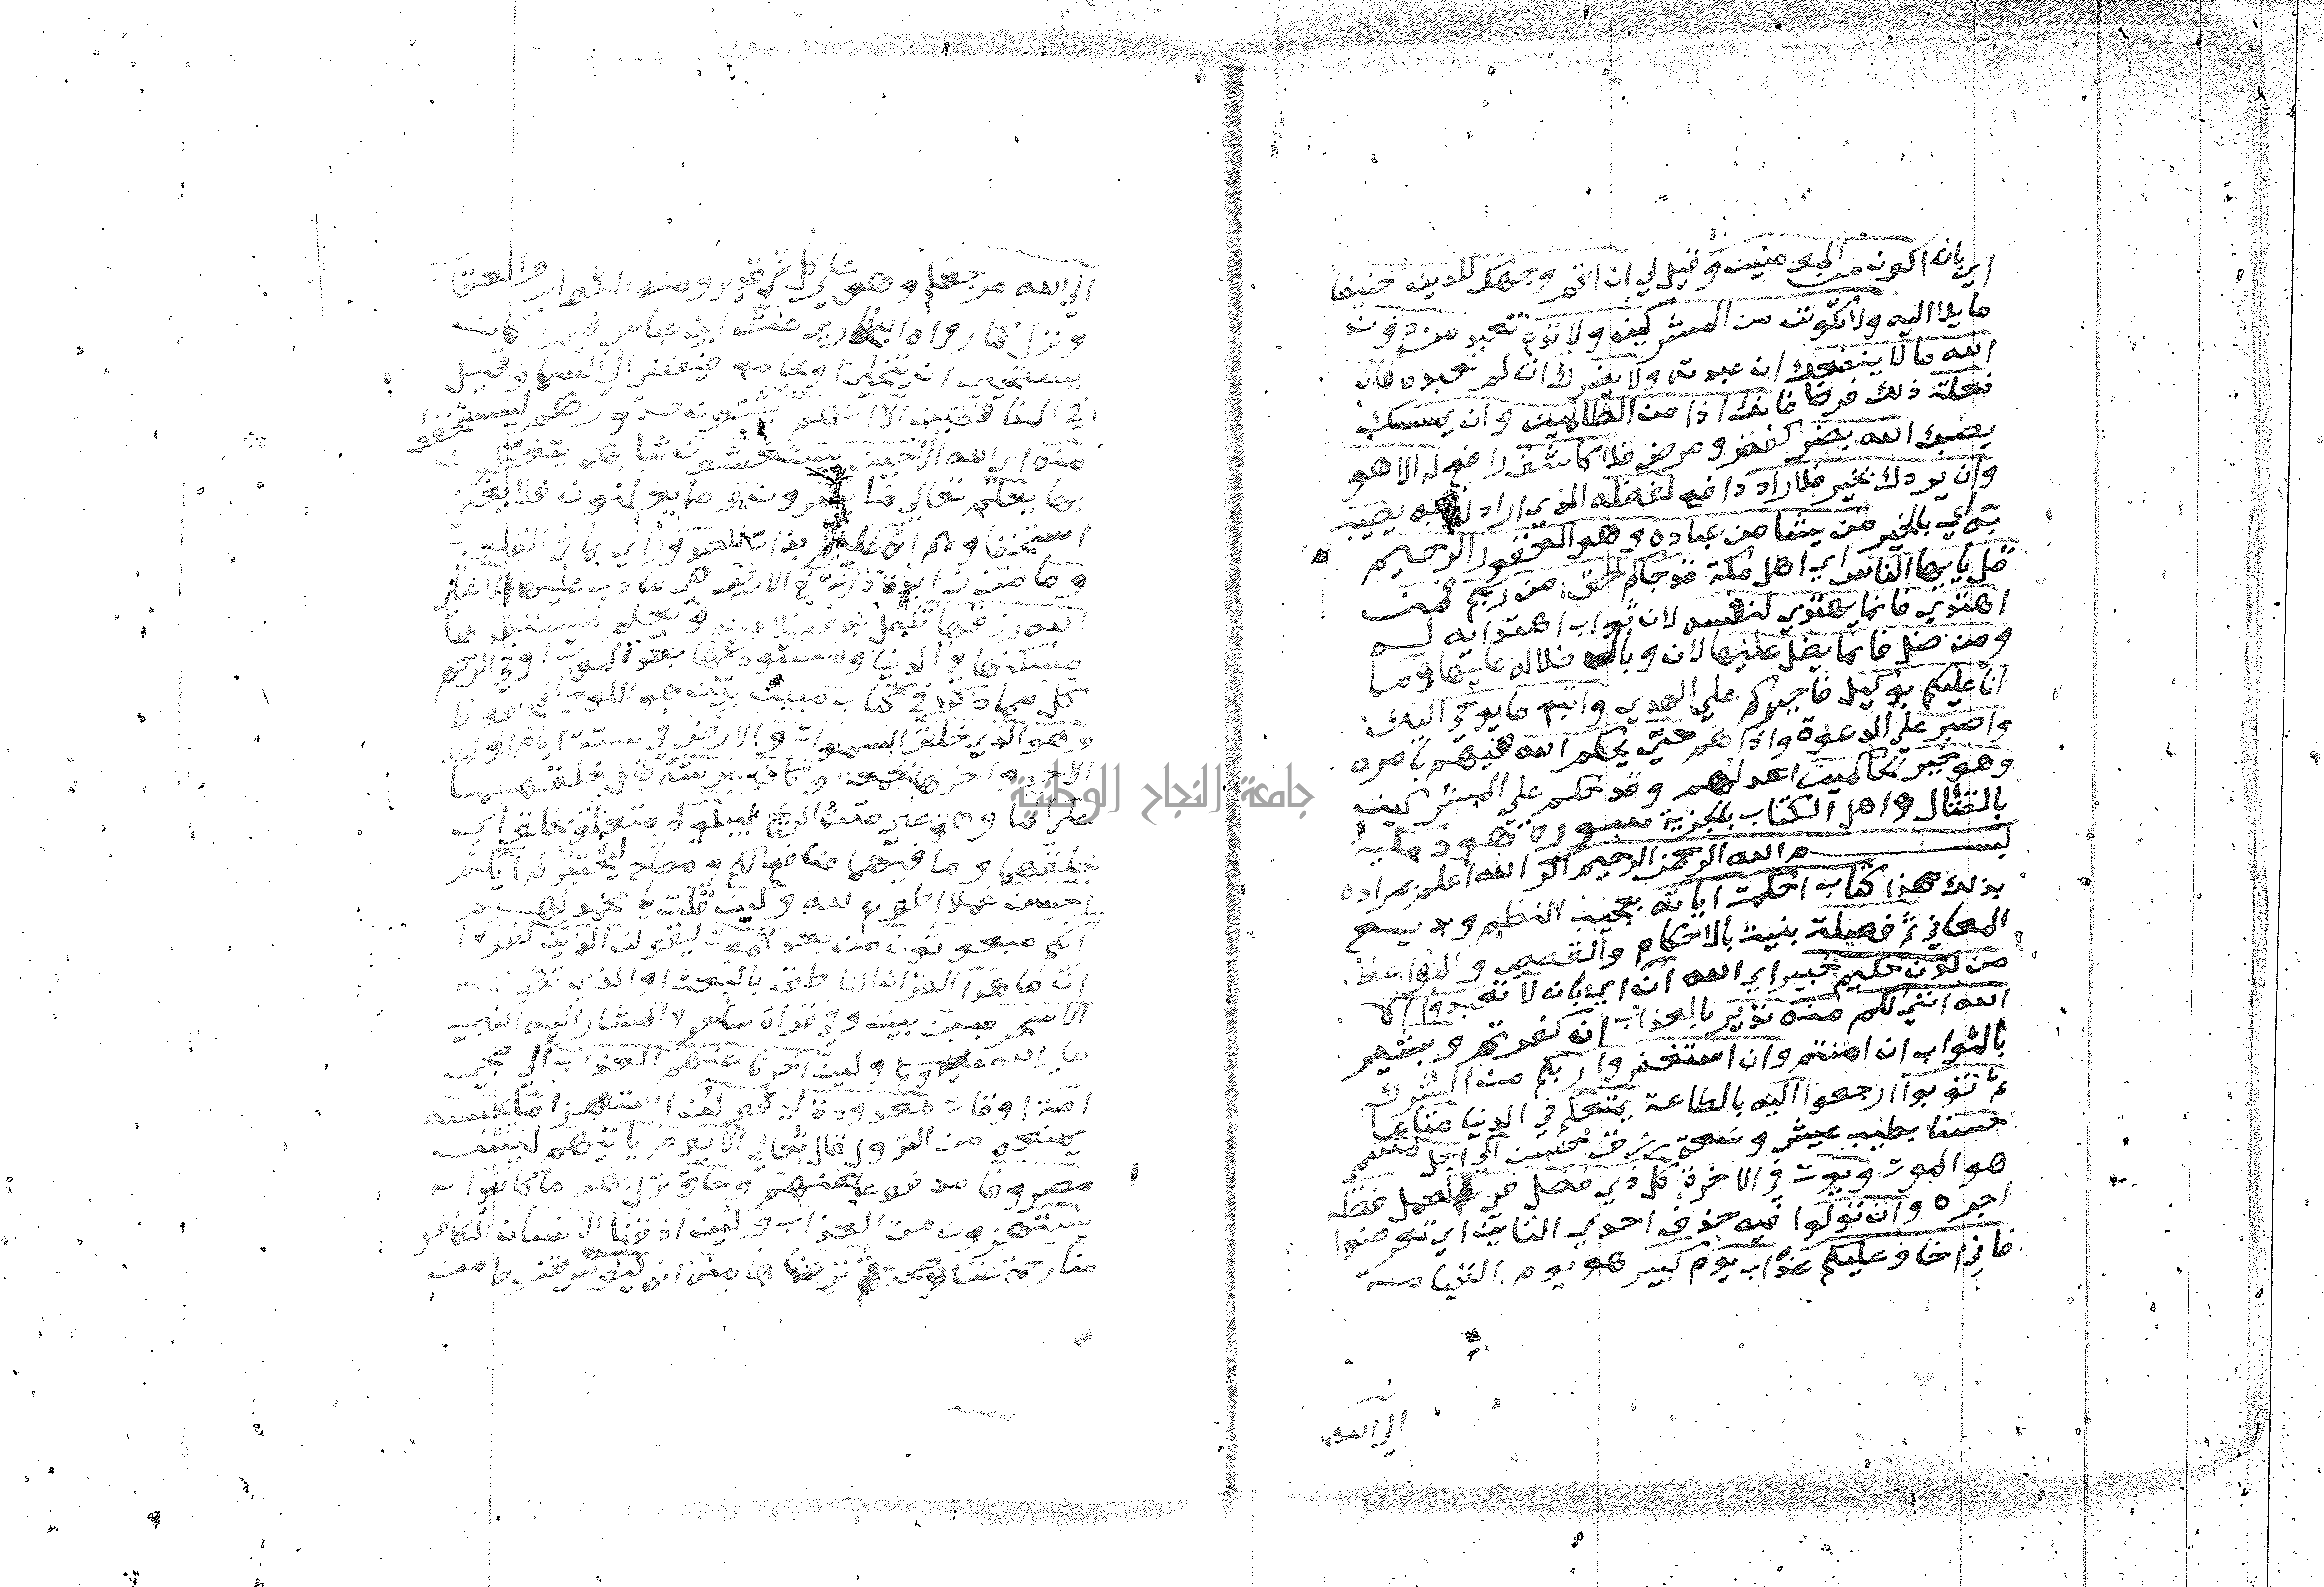 اي بان اكون من المومنين وقيل لي ان اقم وجهك للدين حنيفا
مايلا اليه ولا تكونن من المشركين ولا تدع تعبد من دون
الله ما لا ينفعك ان عبدته ولا يضرك ان لم تعبده فان
فعلت ذلك فرضا فانك اذا من الظالمين وان يمسسك
يصبك الله بضر كفقر ومرض فلا كاشف رافع له الا هو
وان يردك بخير فلا راد دافع لفضله الذي ارادك به يصيب
به اي بالخير من يشا من عباده وهو الغفور الرحيم
قل يايها الناس اي اهل مكة قد جاكم الحق من ربكم فمن
اهتدي فانما يهتدي لنفسه لان ثواب اهتدايه له
ومن ضل فانما يضل عليها لان وبال ضلاله عليها وما
انا عليكم بوكيل فاجبركم علي الهدي واتبع ما يوحي اليك
واصبر علي الدعوة واذاهم حتي يحكم الله فيهم بامره
وهو خير الحاكمين اعدلهم وقد حكم علي المشركين
بالقتال واهل الكتاب بالجزية سورة هود مكية
بسم الله الرحمن الرحيم الر الله اعلم بمراده
بذلك هذا كتاب احكمت اياته بعجيب النظم وبديع
المعاني ثم فصلت بينت بالاحكام والقصص والمواعظ
من لدن حكيم خبير اي الله ان اي بان لا تعبدوا الا
الله انني لكم منه نذير بالعذاب ان كفرتم وبشير
بالثواب ان امنتم وان استغفروا ربكم من الشرك
ثم توبوا ارجعوا اليه بالطاعة يمتعكم في الدنيا متاعا
حسنا بطيب عيش وسعة رزق الي اجل مسمي
هو الموت ويوت في الاخرة كل ذي فضل في العمل فضله
اجره وان تولوا فيه حذف احدي التاين اي تعرضوا
فاني اخاف عليكم عذاب يوم كبير هو يوم القيامة
الي الله
الي الله مرجعكم وهو علي كل شي قدير ومنه الثواب والعقاب
ونزل كما رواه البخاري عن ابن عباس فيمن كان
يستحيي ان يتخلي او يجامع فيفضي الي السما وقيل
في المنافقين الا انهم يثنون صدورهم ليستخفوا
منه اي الله الا حين يستغشون ثيابهم يتغطون
بها يعلم تعالي ما يسرون وما يعلنون فلا يغني
استخفاوهم انه عليم بذات الصدور اي بما في القلوب
وما من دابة في الارض هي ما دب عليها الا علي
الله رزقها تكفل به فضلا منه ويعلم مستقرها
مسكنها في الدنيا ومستودعها بعد الموت او في الرحم
كل مما ذكر في كتاب مبين بين هو اللوح المحفوظ
وهو الذي خلق السموات والارض في ستة ايام اولها
الاحد واخرها الجمعة وكان عرشه قبل خلقهما
علي الما وهو علي متن الريح ليبلوكم متعلق بخلق اي
خلقهما وما فيهما منافع لكم ومصالح ليختبركم ايكم
احسن عملا اطوع لله ولين قلت يا محمد لهم
انكم مبعوثون من بعد الموت ليقولن الذين كفروا
ان ما هذا القران الناطق بالبعث او الذي تقوله
الا سحر مبين بين وفي قراة ساحر والمشار اليه النبي
صلي الله عليه وسلم ولين اخرنا عنهم العذاب الي مجي
امة اوقات معدودة ليقولن استهزا ما يحبسه
يمنعه من النزول قال تعالي الا يوم ياتيهم ليس
مصروفا مدفوعا عنهم وحاق نزل بهم ما كانوا به
يستهزون من العذاب ولين اذقنا الانسان الكافر
منا رحمة غنا وصحة ثم نزعناها منه انه ليوس قنوط من
جامعة النجاح الوطنية